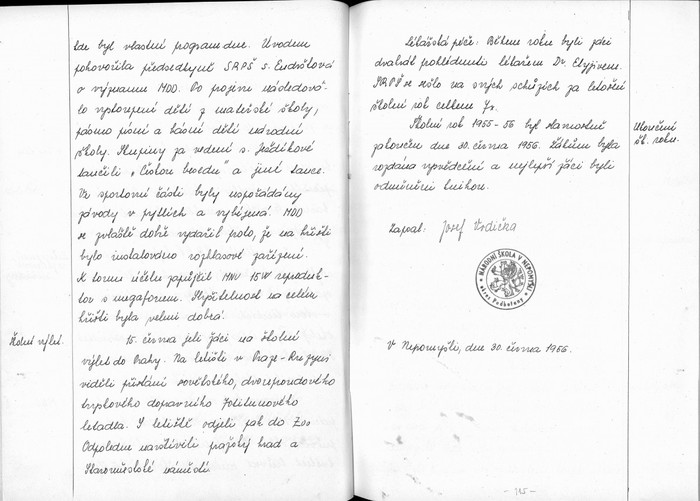 kde byl vlastní program dne. Úvodem
pohovořila předsedkyně SRPŠ s. Endrštová
o významu MDD. Po projevu následova-
lo vystoupení dětí z mateřské školy,
pásmo písní a básní dětí národní
školy. Skupiny za vedení s. Ježdíkové
tančili „Českou besedu" a jiné tance.
Ve sportovní části byly uspořádány
závody v pytlích a vybíjená. MDD
se zvláště dobře vydařil proto, že na hřišti
bylo instalováno rozhlasové zařízení.
K tomu účelu zapůjčil MNV 15W reproduk-
tor s megafonem. Slyšitelnost na celém
hřišti byla velmi dobrá.
Školní výlet.
15. června jeli žáci na školní
výlet do Prahy. Na letišti v Praze-Ruzyni
viděli přistání sovětského, dvouposchoďového
tryskového dopravního
letadla. S letiště odjeli pak do Zoo
Odpoledne navštívili pražský hrad a
Staroměstské náměstí.
Lékařská péče: Během roku byli žáci
dvakrát prohlédnuti lékařem Dr.
SRPŠ se sešlo na svých schůzích za letošní
školní rok celkem 7x.
Školní rok 1955-56 byl slavnostně
zakončen dne 30. června 1956. Žákům byla
rozdána vysvědčení a nejlepší žáci byli
odměněni knihou.
Ukončení
šk. roku.
Zapsal: Josef Vodička
NÁRODNÍ ŠKOLA V NEPOMYŠLI
okres Podbořany
V Nepomyšli, dne 30. června 1956.
- 125 -